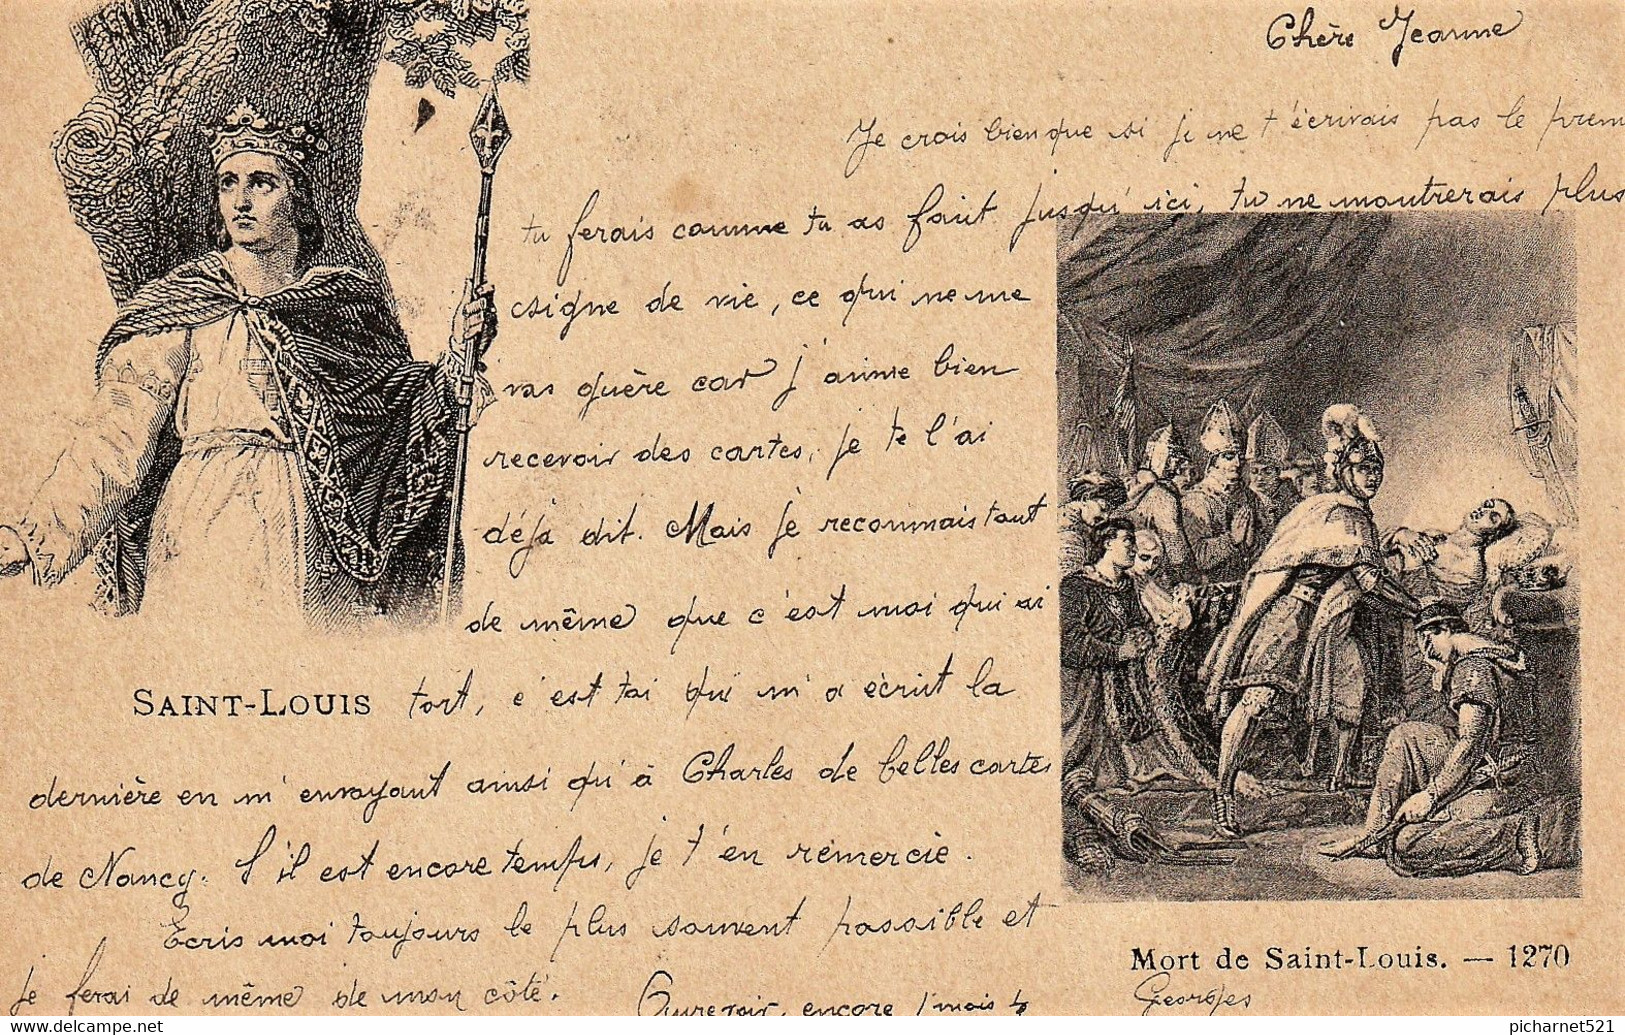 Chère Jeanne
Je crois bien que si je ne t'écrivais pas le prem
tu ferais comme tu as fait jusqu'ici, tu ne montrerais plus
signe de vie, ce qui ne me
vas guère car j'aime bien
recevoir des cartes, je te l'ai
déjà dit. Mais je reconnais tout
de même que c'est moi qui ai
SAINT-LOUIS tort, c'est toi qui m'a écrit la
dernière en m'envoyant ainsi qu'à Charles de belles cartes
de Nancy. S'il est encore temps, je t'en remercie.
Ecris moi toujours le plus souvent possible et
je ferai de même de mon côté.
Aurevoir, encore 1 mois
Mort de Saint-Louis. — 1270
Georges
picharnet521